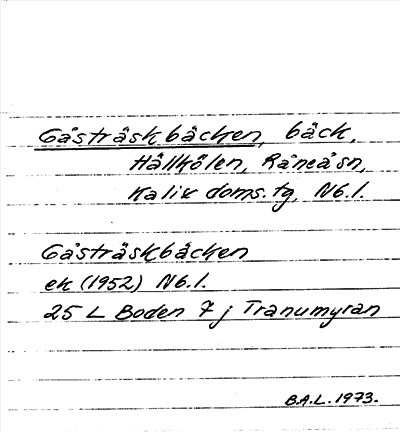 Gåsträskbäcken, bäck,
Hällkölen, Råneå sn,
Kalix doms. tg, Nb. l.
Gåsträskbäcken
ek (1952) Nb. l.
25 L Boden 7 j Tranumyran
B.A.L. 1973.